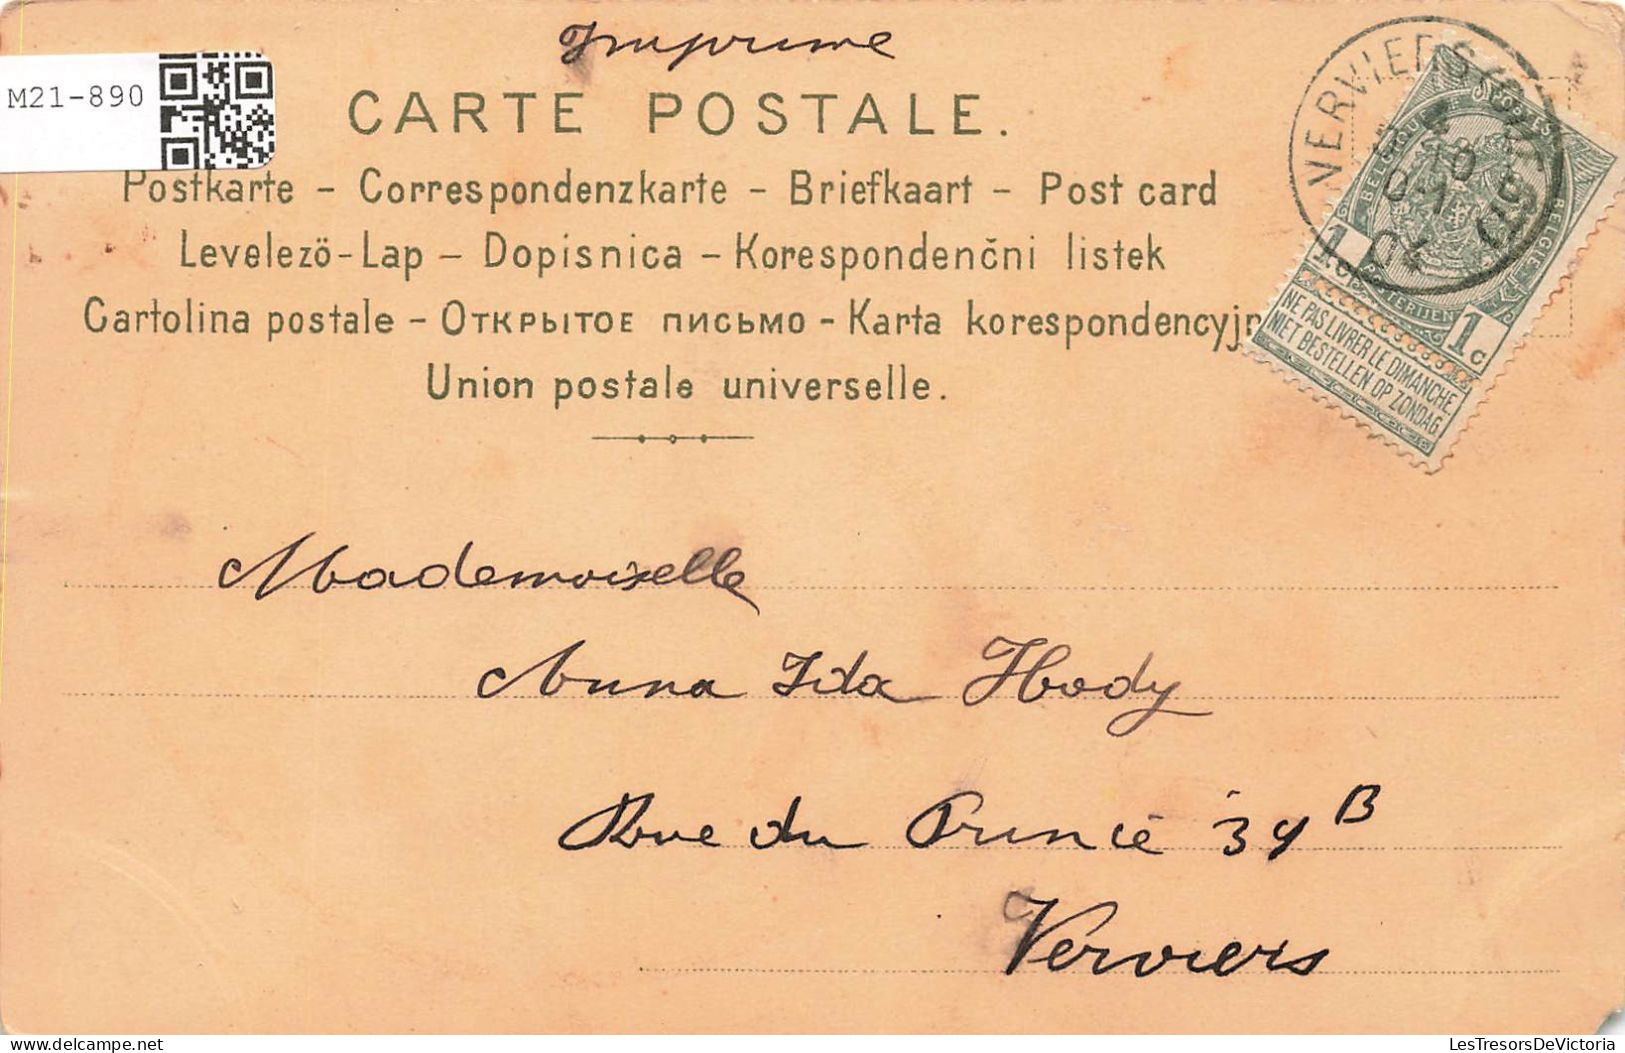 Imprime
M21-890
CARTE POSTALE.
Postkarte - Correspondenzkarte - Briefkaart - Post card
Levelezö-Lap - Dopisnica - Korespondenčni listek
Cartolina postale - Открытое письмо - Karta korespondencyjn
Union postale universelle.
VERVIERS
04
BELGIQUE BELGIE
1c 1c
NE PAS LIVRER LE DIMANCHE
NIET BESTELLEN OP ZONDAG
Mademoiselle
Anna Ida Hody
Rue du Prince 34 B
Verviers
www.delcampe.net
LesTresorsDeVictoria